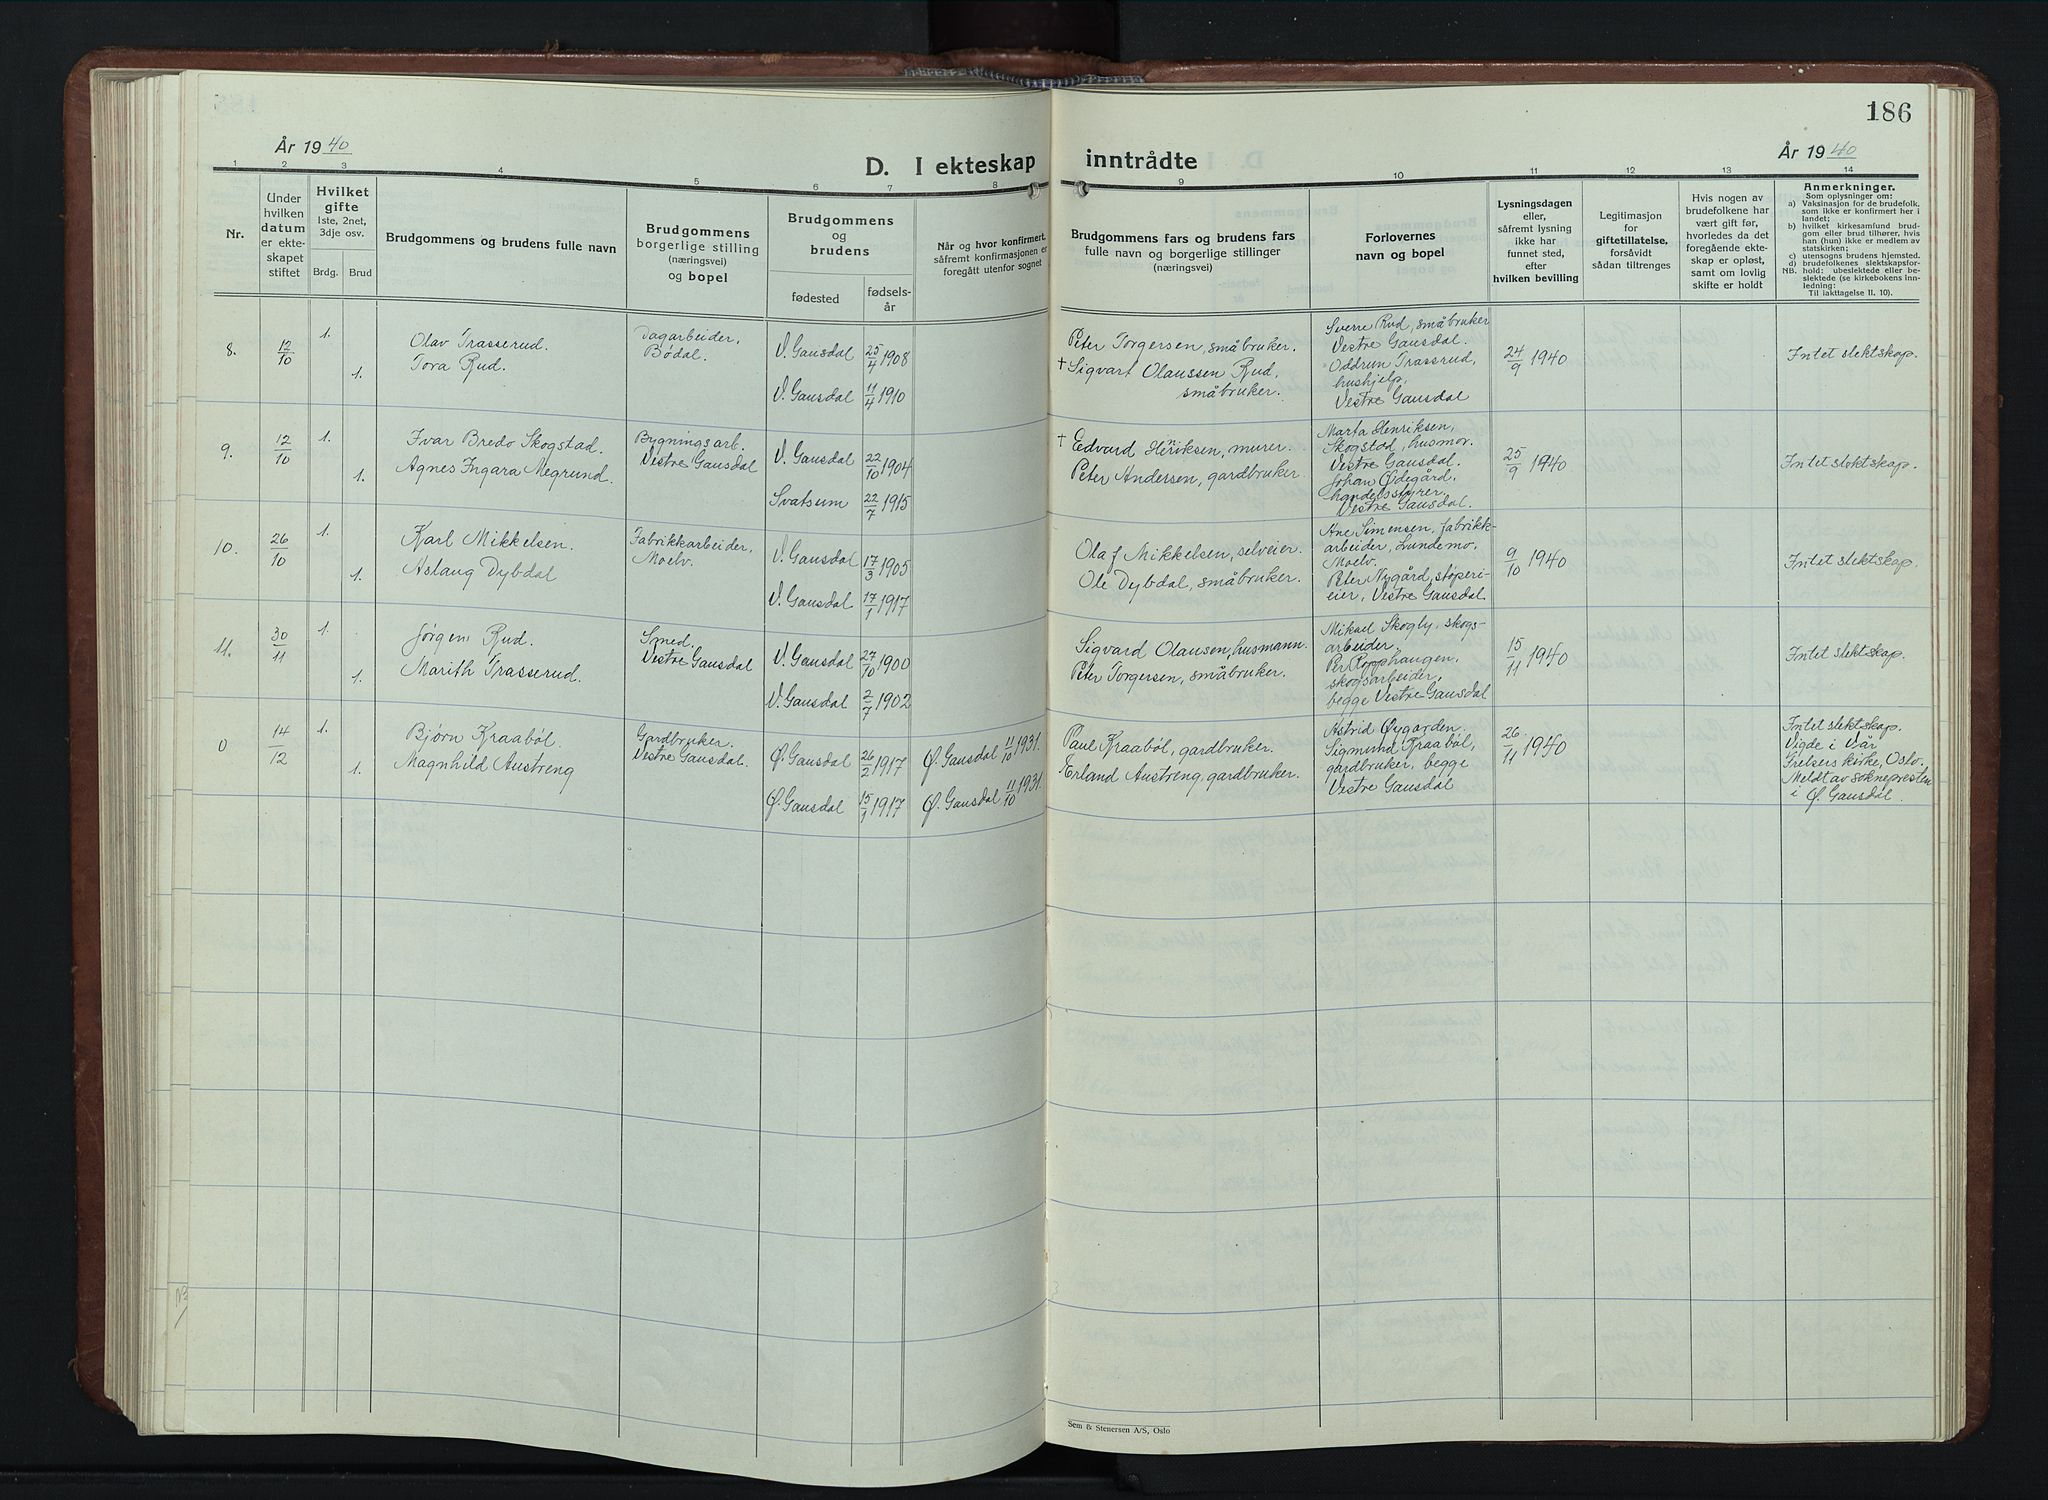 186
År 1940
D. I ekteskap inntrådte
År 1940
1 2 3 4 5 6 7 8 9 10 11 12 13 14
Nr.
Under
hvilken
datum
er ekte-
skapet
stiftet
Hvilket
gifte
1ste, 2net,
3dje osv.
Brdg. Brud
Brudgommens og brudens fulle navn
Brudgommens
borgerlige stilling
(næringsvei)
og bopel
Brudgommens
og
brudens
fødested
fødsels-
år
Når og hvor konfirmert,
såfremt konfirmasjonen er
foregått utenfor sognet
Brudgommens fars og brudens fars
fulle navn og borgerlige stillinger
(næringsvei)
Forlovernes
navn og bopel
Lysningsdagen
eller,
såfremt lysning
ikke har
funnet sted,
efter
hvilken bevilling
Legitimasjon
for
giftetillatelse,
forsåvidt
sådan tiltrenges
Hvis nogen av
brudefolkene har
vært gift før,
hvorledes da det
foregående ekte-
skap er opløst,
samt om lovlig
skifte er holdt
Anmerkninger.
Som oplysninger om:
a) Vaksinasjon for de brudefolk,
som ikke er konfirmert her i
landet;
b) hvilket kirkesamfund brud-
gom eller brud tilhører, hvis
han (hun) ikke er medlem av
statskirken;
c) utensogns brudens hjemsted.
d) brudefolkenes slektskapsfor-
NB. hold: ubeslektede eller be-
slektede (se kirkebokens inn-
ledning:
Til iakttagelse II. 10).
8. 12/10 1. 1.
Olav Trasserud.
Tora Rud.
Dagarbeider,
Bødal.
V. Gausdal 25/4 1908
V. Gausdal 11/4 1910
Peter Torgersen, småbruker.
† Sigvart Olaussen Rud,
småbruker.
Sverre Rud, småbruker
Vestre Gausdal.
Oddrun Trassrud,
hushjelp,
Vestre Gausdal
24/9 1940
Intet slektskap.
9. 12/10 1. 1.
Ivar Bredo Skogstad.
Agnes Ingara Megrund.
Bygningsarb.
Vestre Gausdal
V. Gausdal 22/10 1904
Svatsum 22/7 1915
† Edvard Henriksen, murer.
Peter Andersen, gardbruker.
Marta Henriksen,
Skogstad, husmor.
Vestre Gausdal.
Johan Ødegård,
handelsstyrer,
Vestre Gausdal.
25/9 1940
Intet slektskap.
10. 26/10 1. 1.
Karl Mikkelsen.
Aslaug Dybdal
Fabrikkarbeider,
Moelv.
V. Gausdal 17/3 1905
V. Gausdal 17/1 1917
Olaf Mikkelsen, selveier.
Ole Dybdal, småbruker.
Ane Simensen, fabrikk-
arbeider, Lundemo,
Moelv.
Peter Nygård, støperi-
eier, Vestre Gausdal
9/10 1940
Intet slektskap.
11. 30/11 1. 1.
Jørgen Rud.
Marith Trasserud.
Smed.
Vestre Gausdal
V. Gausdal 27/10 1900
V. Gausdal 2/7 1902
Sigvard Olausen, husmann.
Peter Torgersen, småbruker.
Mikael Skogly, skogs-
arbeider.
Per Ropphaugen,
skogsarbeider,
begge Vestre Gausdal
15/11 1940
Intet slektskap.
0 14/12 1. 1.
Bjørn Kraabøl.
Magnhild Austreng
Gardbruker.
Vestre Gausdal.
Ø. Gausdal 26/2 1917
Ø. Gausdal 15/1 1917
Ø. Gausdal 11/10 1931.
Ø. Gausdal 11/10 1931.
Paul Kraabøl, gardbruker.
Erland Austreng, gardbruker.
Astrid Øygarden.
Sigmund Kraabøl,
gardbruker, begge
Vestre Gausdal
26/11 1940
Intet slektskap.
Vigde i Vår
Frelsers kirke, Oslo.
Meldt av soknepresten
i Ø. Gausdal.
Sem & Stenersen A/S, Oslo